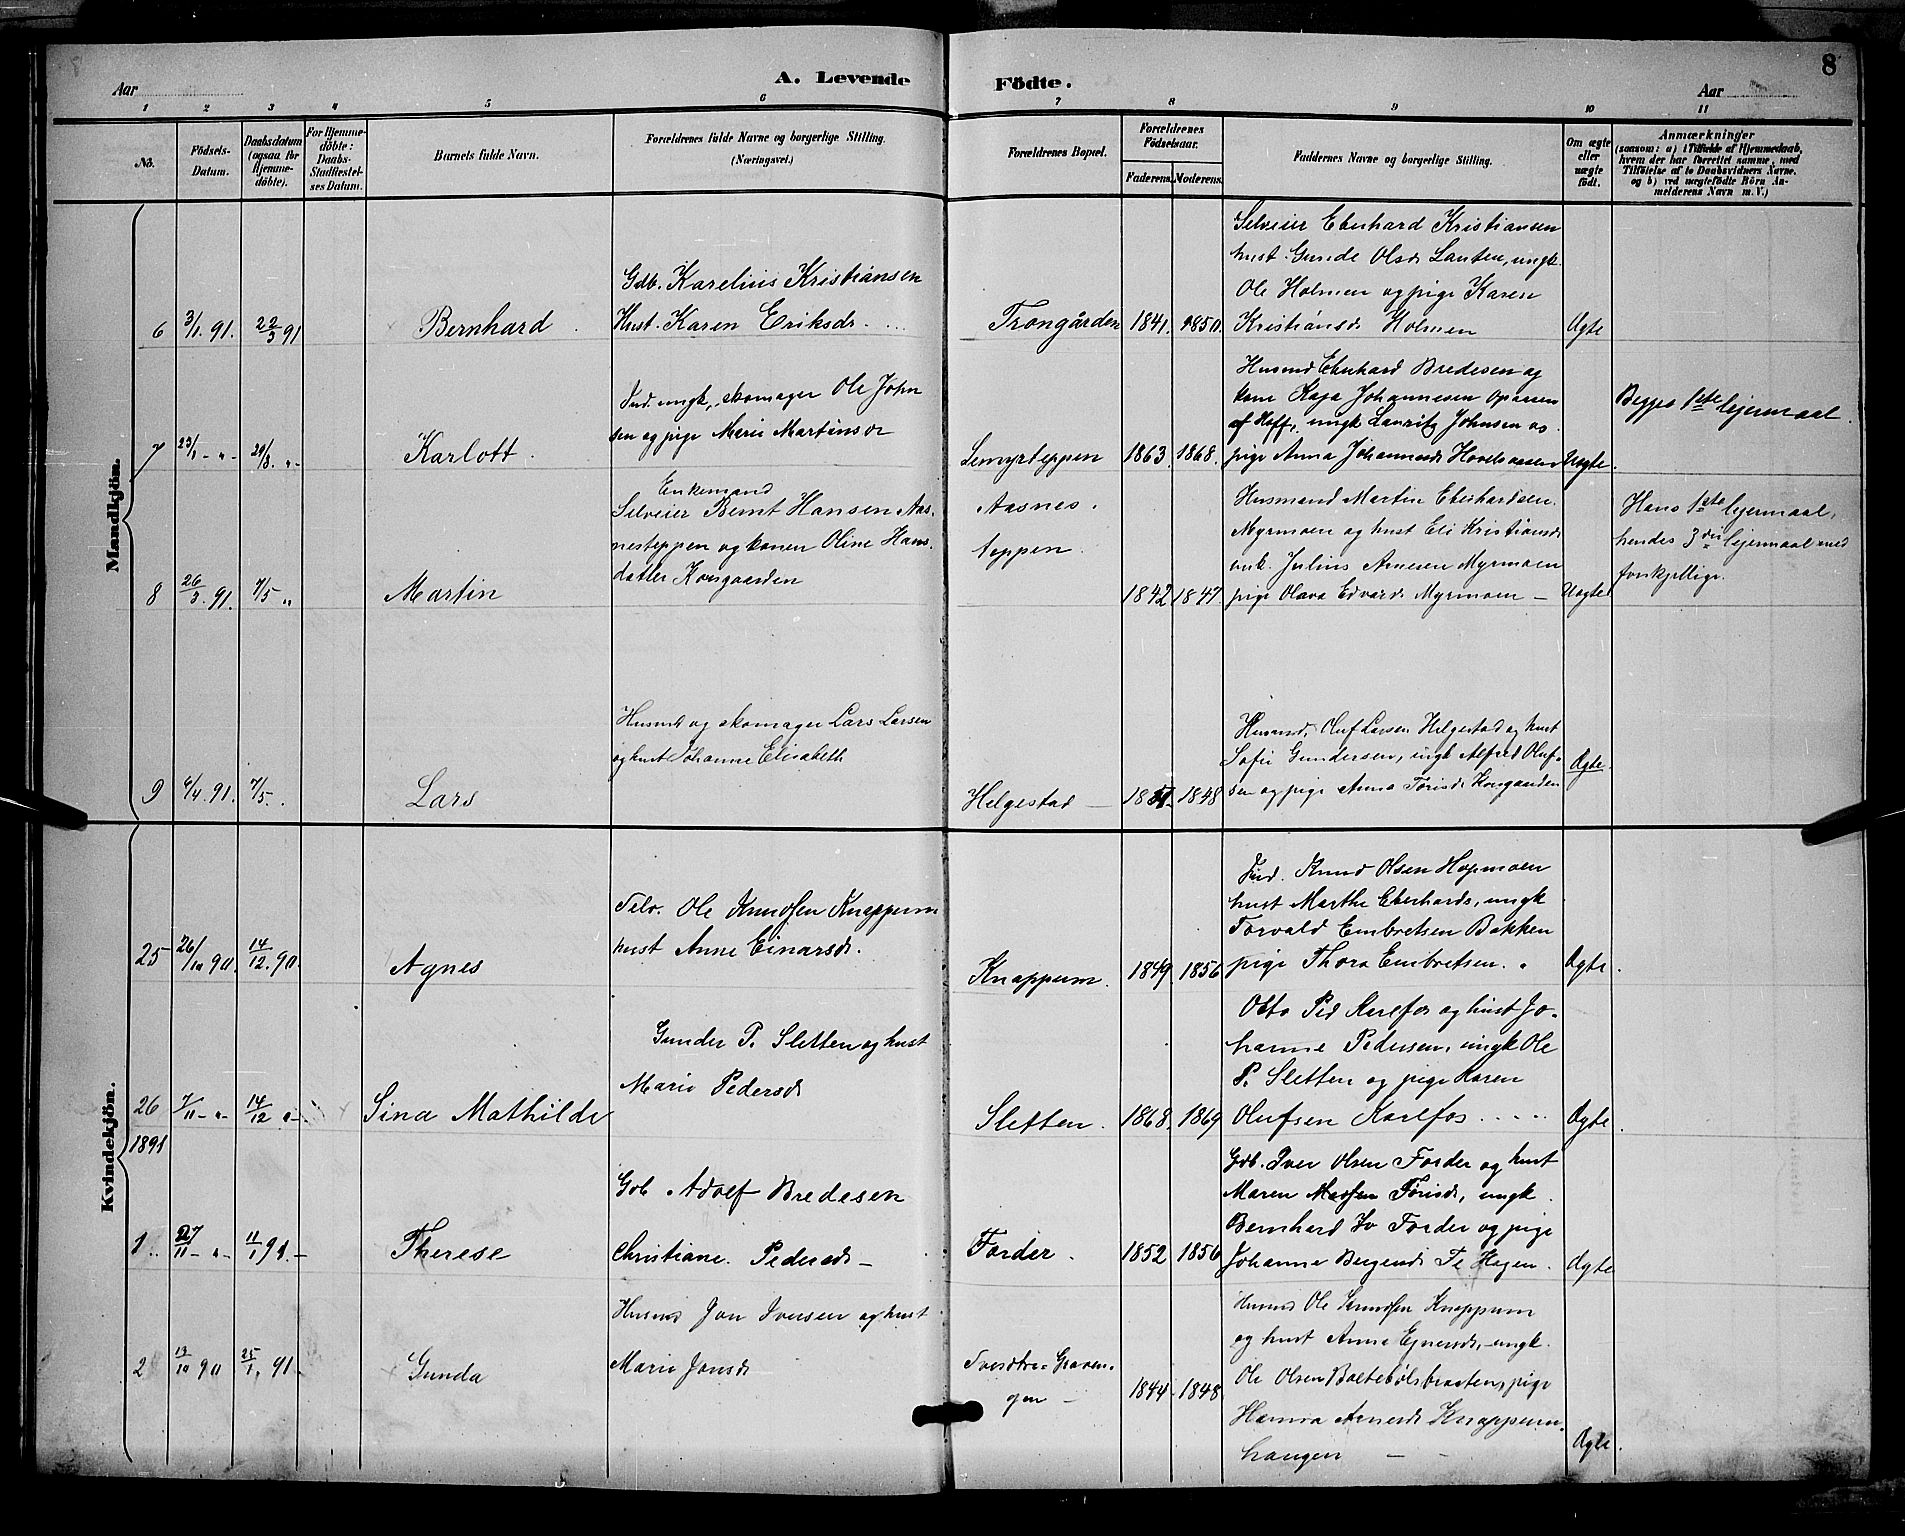 8
A. Levende Födte.
Aar
Aar
1 2 3 4 5 6 7 8 9 10 11
No.
Födsels-Datum.
Daabsdatum (ogsaa for Hjemme-döbte).
For Hjemme-döbte: Daabs-Stadfæstel-ses Datum.
Barnets fulde Navn.
Forældrenes fulde Navne og borgerlige Stilling. (Næringsvei.)
Forældrenes Bopæl.
Forældrenes Födselsaar.
Faderens. Moderens.
Faddernes Navne og borgerlige Stilling.
Om ægte eller uægte födt.
Anmærkninger
(saasom: a) i Tilfælde af Hjemmedaab,
hvem der har forrettet samme, med
Tilföielse af to Daabsvidners Navne.
og b) ved uægtefödte Börn An-
melderens Navn m. V.)
Mandkjön.
6 3/1. 91. 22/3 91 Bernhard
Gdb. Karelius Kristiansen
Hust. Karen Eriksdr.
Trongården 1841. 1850.
Selveier Eberhard Kristiansen
hust. Gunde Olsdr Lauten, ungk.
Ole Holmen og pige Karen
Kristiansd Holmen
Ægte
7 23/1 - " - Karlott.
Ind. ungk, skomager Ole John
sen og pige Marie Martinsdr
Lemyrteppen 1863. 1868.
Husmd Eberhard Bredesen og
kone Kaja Johannesen Opaasen
af Hoff, ungk Lauritz Johnsen og
pige Anna Johannesd Hovelsaasen
Uægte.
Begges 1ste lejermaal
8 26/3. 91. 7/5 " Martin
Enkemand
Selveier Bernt Hansen Aas-
nesteppen og konen Oline Hans-
datter Kongaarden
Aasnes-
teppen.
1842 1847.
Husmand Martin Eberhardsen
Myrmoen og hust Eli Kristiansd
unk. Julius Arnesen Myrmoen
pige Olava Edvardsd Myrmoen -
Uægte
Hans 1ste lejermaal,
hendes 3die lejermaal med
forskjellige.
9 6/4. 91. 7/5. Lars
Husmd og skomager Lars Larsen
og hust Johanne Elisabeth
Helgestad - 1851. 1848
Husmd, Oluf Larsen Helgestad og hust
Sofie Gundersen, ungk Alfred Oluf-
sen og pige Anna Törisd Kongaarden
Ægte.
Kvindekjön.
25 26/10 90. 14/12. 90. Agnes
Selv. Ole Knudsen Knappum
hust Anne Einarsdr.
Knappum. 1849. 1856
Ind. Knud Olsen Hapmoen
hust Marthe Eberhards, ungk
Torvald Embretsen Bakken
pige Thora Embretsen. "
Ægte
26 7/11 - " - 14/12 " - Sina Mathilde
Gunder P. Sletten og hust
Marie Pedersd
Sletten. 1868. 1869
Otto Ped Karlfos og hust Jo-
hanne Pedersen, ungk Ole
P. Sletten og pige Karen
Olufsen Karlfos
Ægte.
1891
1 27/11 - " - 11/1 91. - Therese
Gdb Adolf Bredesen
Christiane Pedersdr -
Forder. 1852 1856
Gdb. Iver Olsen Forder og hust
Maren Törisd, ungk.
Bernhard Iv Forder og pige
Johanne Bergersd Hagen.
Ægte
2 13/10 90 25/1. 91. Gunda
Husmd Jon Iversen og hust
Marie Jonsd
Graven-
gen -
1844 - 1848
Husmd Ole Knudsen Knappum
og hust Anna Ejnersd, ungk.
Ole Olsen Baltebölsbraaten, pige
Hanna Arnesd Knappum-
haugen -
Ægte.